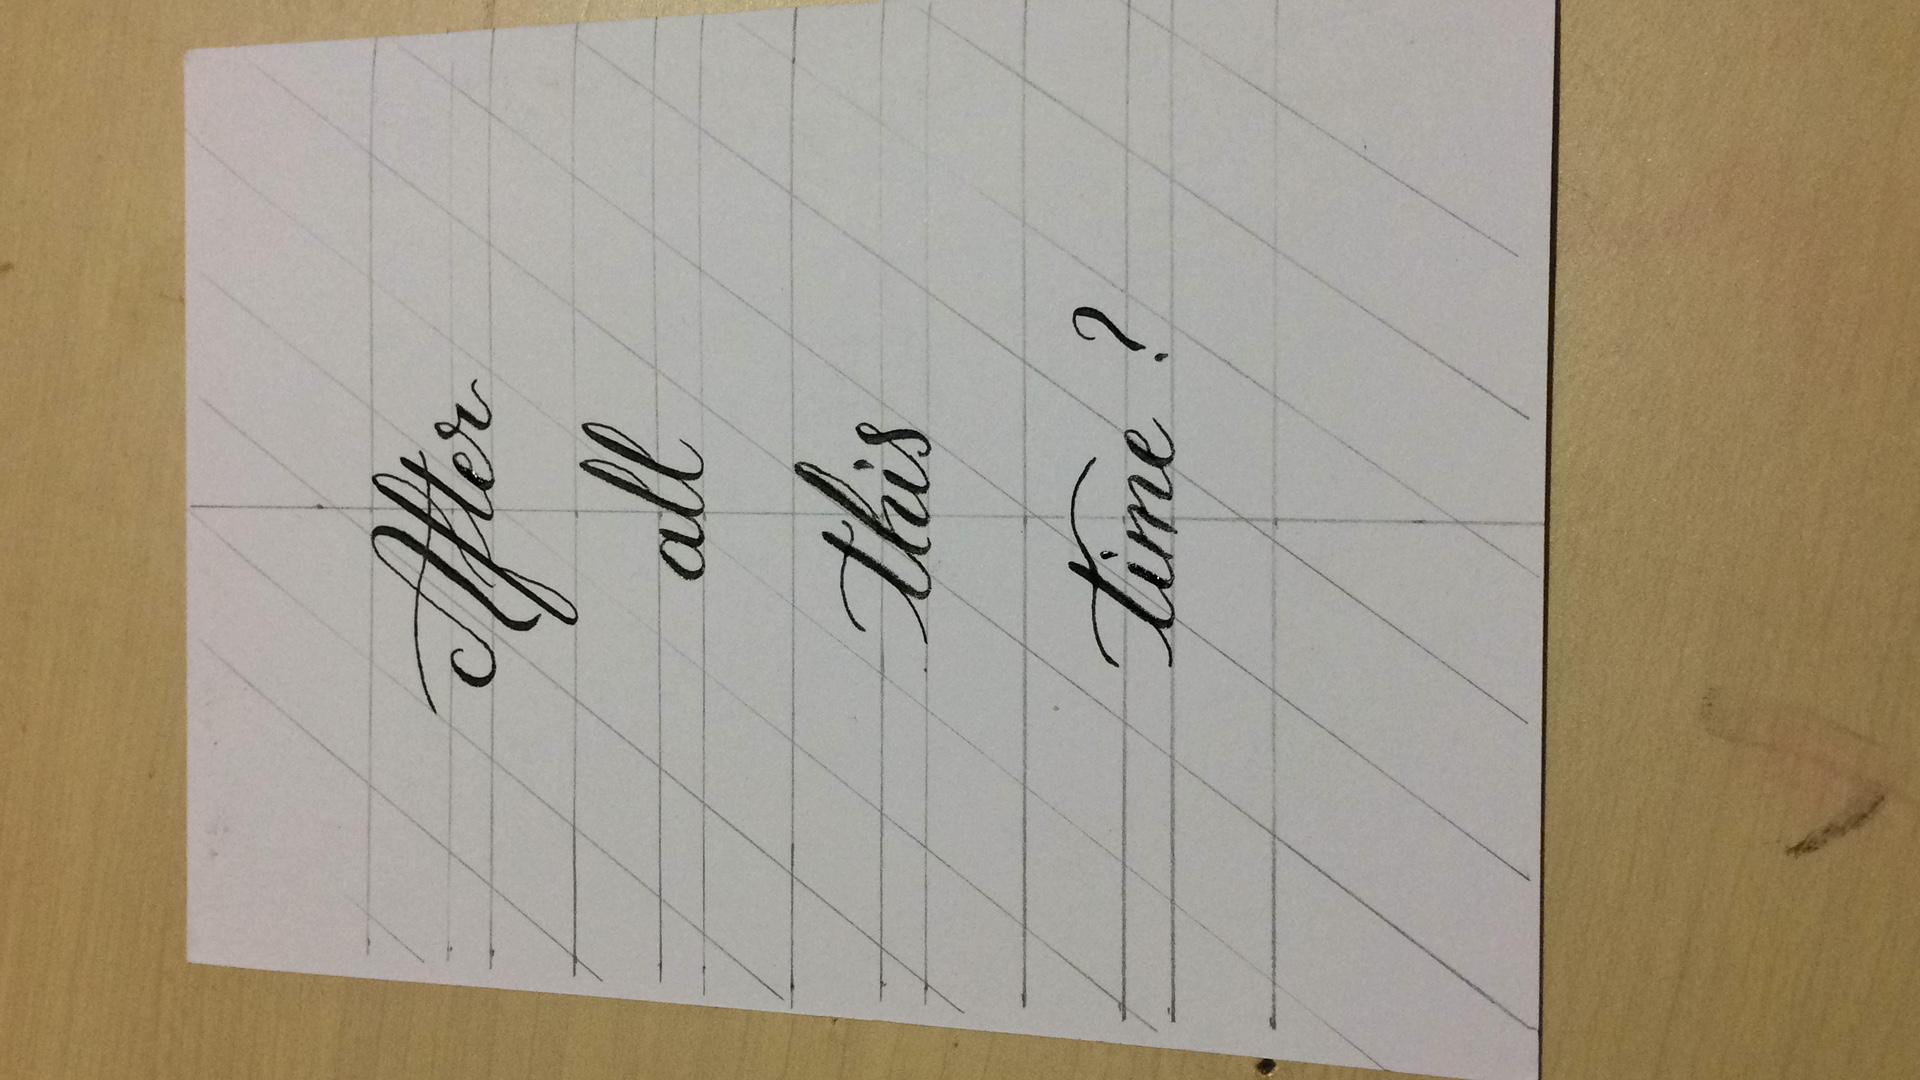 After
all
this
time?